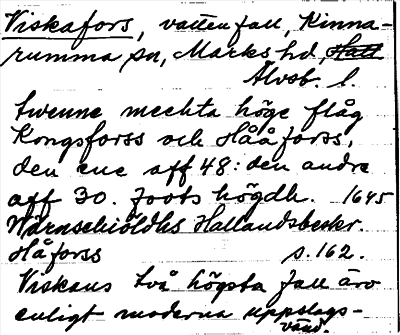 Viskafors, vattenfall, Kinna-
rumma sn, Marks hd, Hall
Älvsb. l.
twenne mechta höge flåg
Kongsforss och Hååforss,
den ene aff 48: den andre
aff 30. foots högdh. 1645
Wärnschiöldhs Hallandsbeskr.
Håforss s. 162.
Viskans två högsta fall äro
enligt moderna uppslags-
verk.